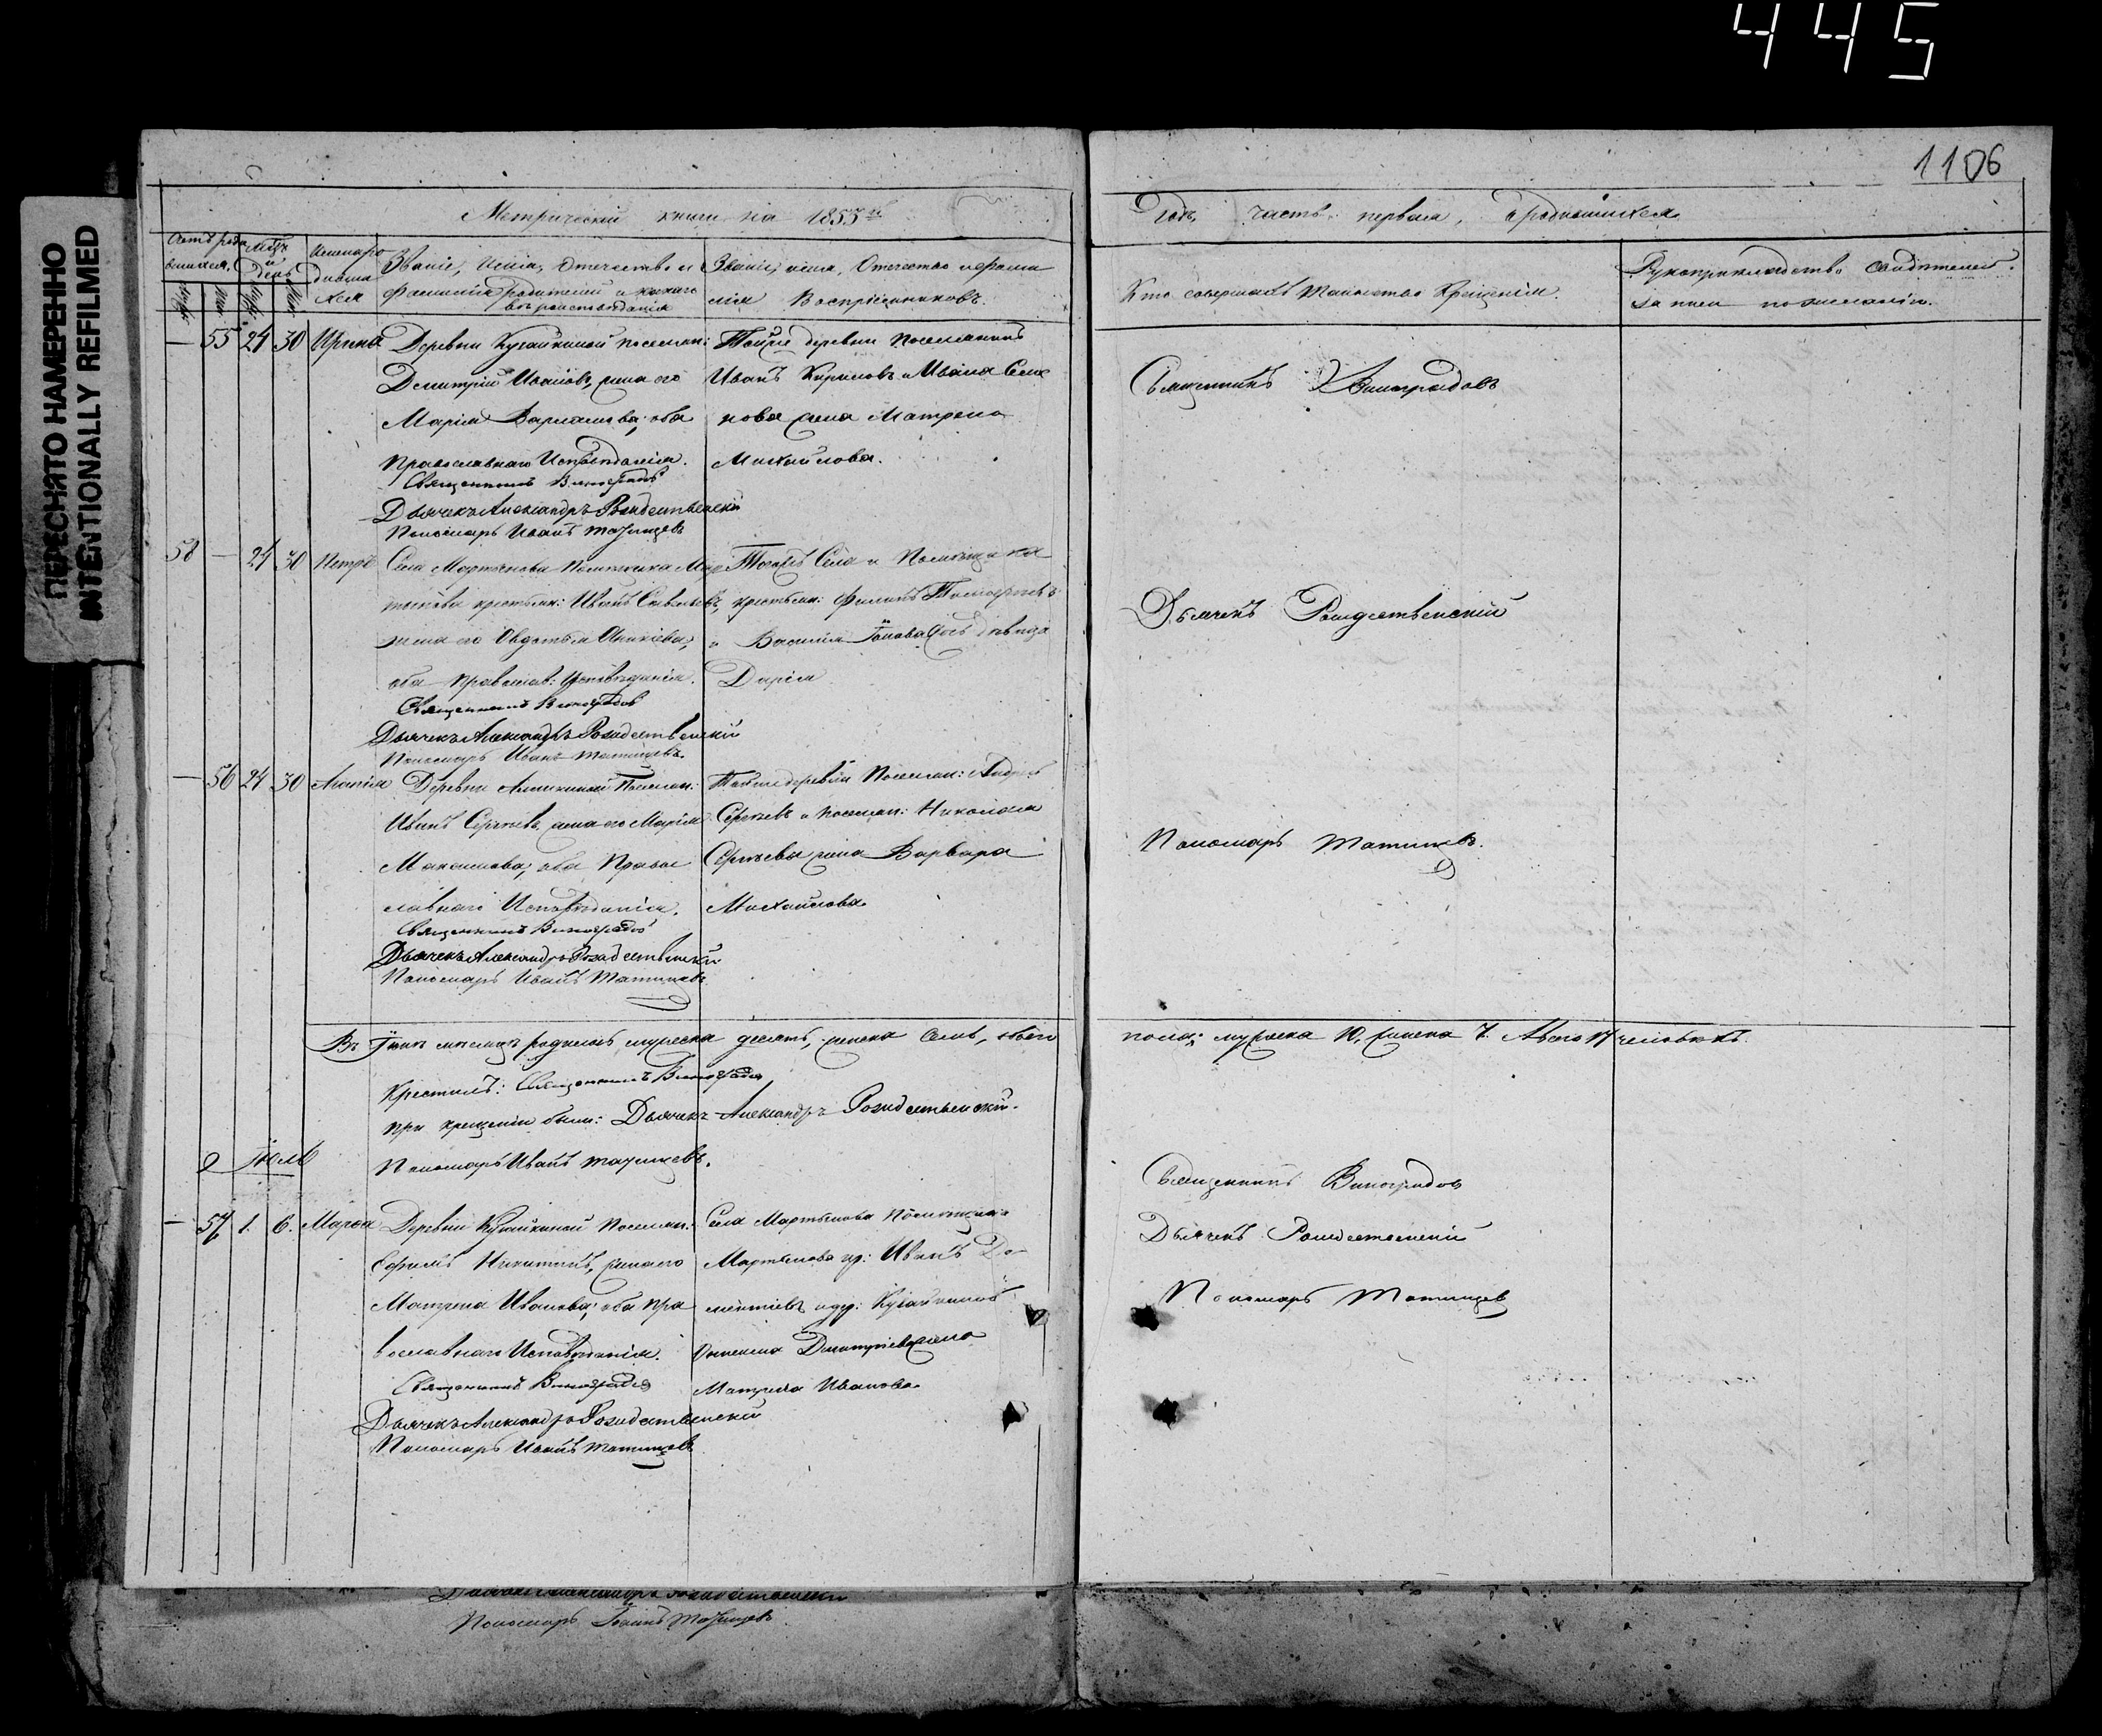 445
ПЕРЕСНЯТО НАМЕРЕННО
INTENTIONALLY REFILMED
1106
Метрической книги на 1855й
Годъ, часть первая, о родившихся
Мѣцъ и день
Звание, Имя, Отечество и
фамилия родителей и какого
вѣроисповѣдания
Звание, имя, Отечество и фами
лия Восприемниковъ.
Кто совершалъ Таинство Крещенія.
Рукоприкладство свидѣтелей
— 55 24 30 Ирина Деревни Кугайкиной поселян:
Димитрій Ивановъ, жена его
Марія Варламова; оба
Православнаго Исповѣданія.
Священникъ Виноградовъ
Дьячекъ Александръ Рождественскій
Пономарь Иванъ Татищевъ
Тойже деревни поселянинъ
Иванъ Кириловъ и Ивана Семе
нова жена Матрена
Михайлова.
Священникъ Виноградовъ
58 — 24 30 Петръ Села Мартынова Помѣщика Мар
тынова крестьян: Иванъ Савельевъ,
жена его Авдотья Аникіева;
оба Православ: Исповѣданія.
Священникъ Виноградовъ
Дьячекъ Александръ Рождественскій
Пономарь Иванъ Татищевъ.
Тогожъ Села и Помѣщика
крестьян: Филипъ Тимофеевъ
Дарія
Дьячекъ Рождественскій
— 56 24 30 Деревни Поселян:
Иванъ Сергѣевъ, жена его Марія
Максимова; оба Правос
лавнаго Исповѣданія.
Священникъ Виноградовъ
Дьячекъ Александръ Рождественскій
Пономарь Иванъ Татищевъ
Тойже деревни Поселян: Андрей
Сергѣевъ и поселян: Николая
Сергѣева жена Варвара
Михайлова.
Пономарь Татищевъ.
Въ Іюнѣ мѣсяцѣ родилось мужеска десять, женска семь, обоего
пола; мужеска 10, женска 7. А всего 17 человѣкъ.
Крестилъ: Священникъ Виноградовъ
при крещеніи были: Дьячекъ Александръ Рождественскій.
Пономарь Иванъ Татищевъ.
Іюль
— 57 1. 6. Марѳа Деревни Кугайкиной поселян:
Ефимъ Никитинъ, жена его
Матрена Иванова; оба пра
вославнаго Исповѣданія.
Священникъ Виноградовъ
Дьячекъ Александръ Рождественскій
Пономарь Иванъ Татищевъ
Села Мартынова Помѣщика
Мартынова кр: Иванъ Де
ментіевъ и др: Кугайкиной
Дмитріева жена
Матрена Иванова.
Священникъ Виноградовъ
Дьячекъ Рождественскій
Пономарь Татищев
Дьячекъ Александръ Рождественскій
Пономарь Іоаннъ Татищевъ.